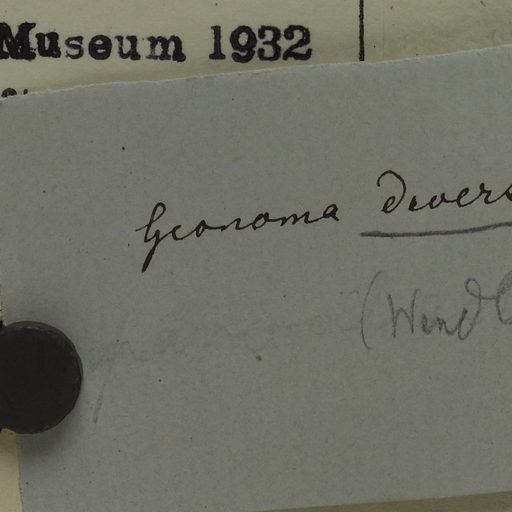 Museum 1932
Geonoma divers
(Wendl